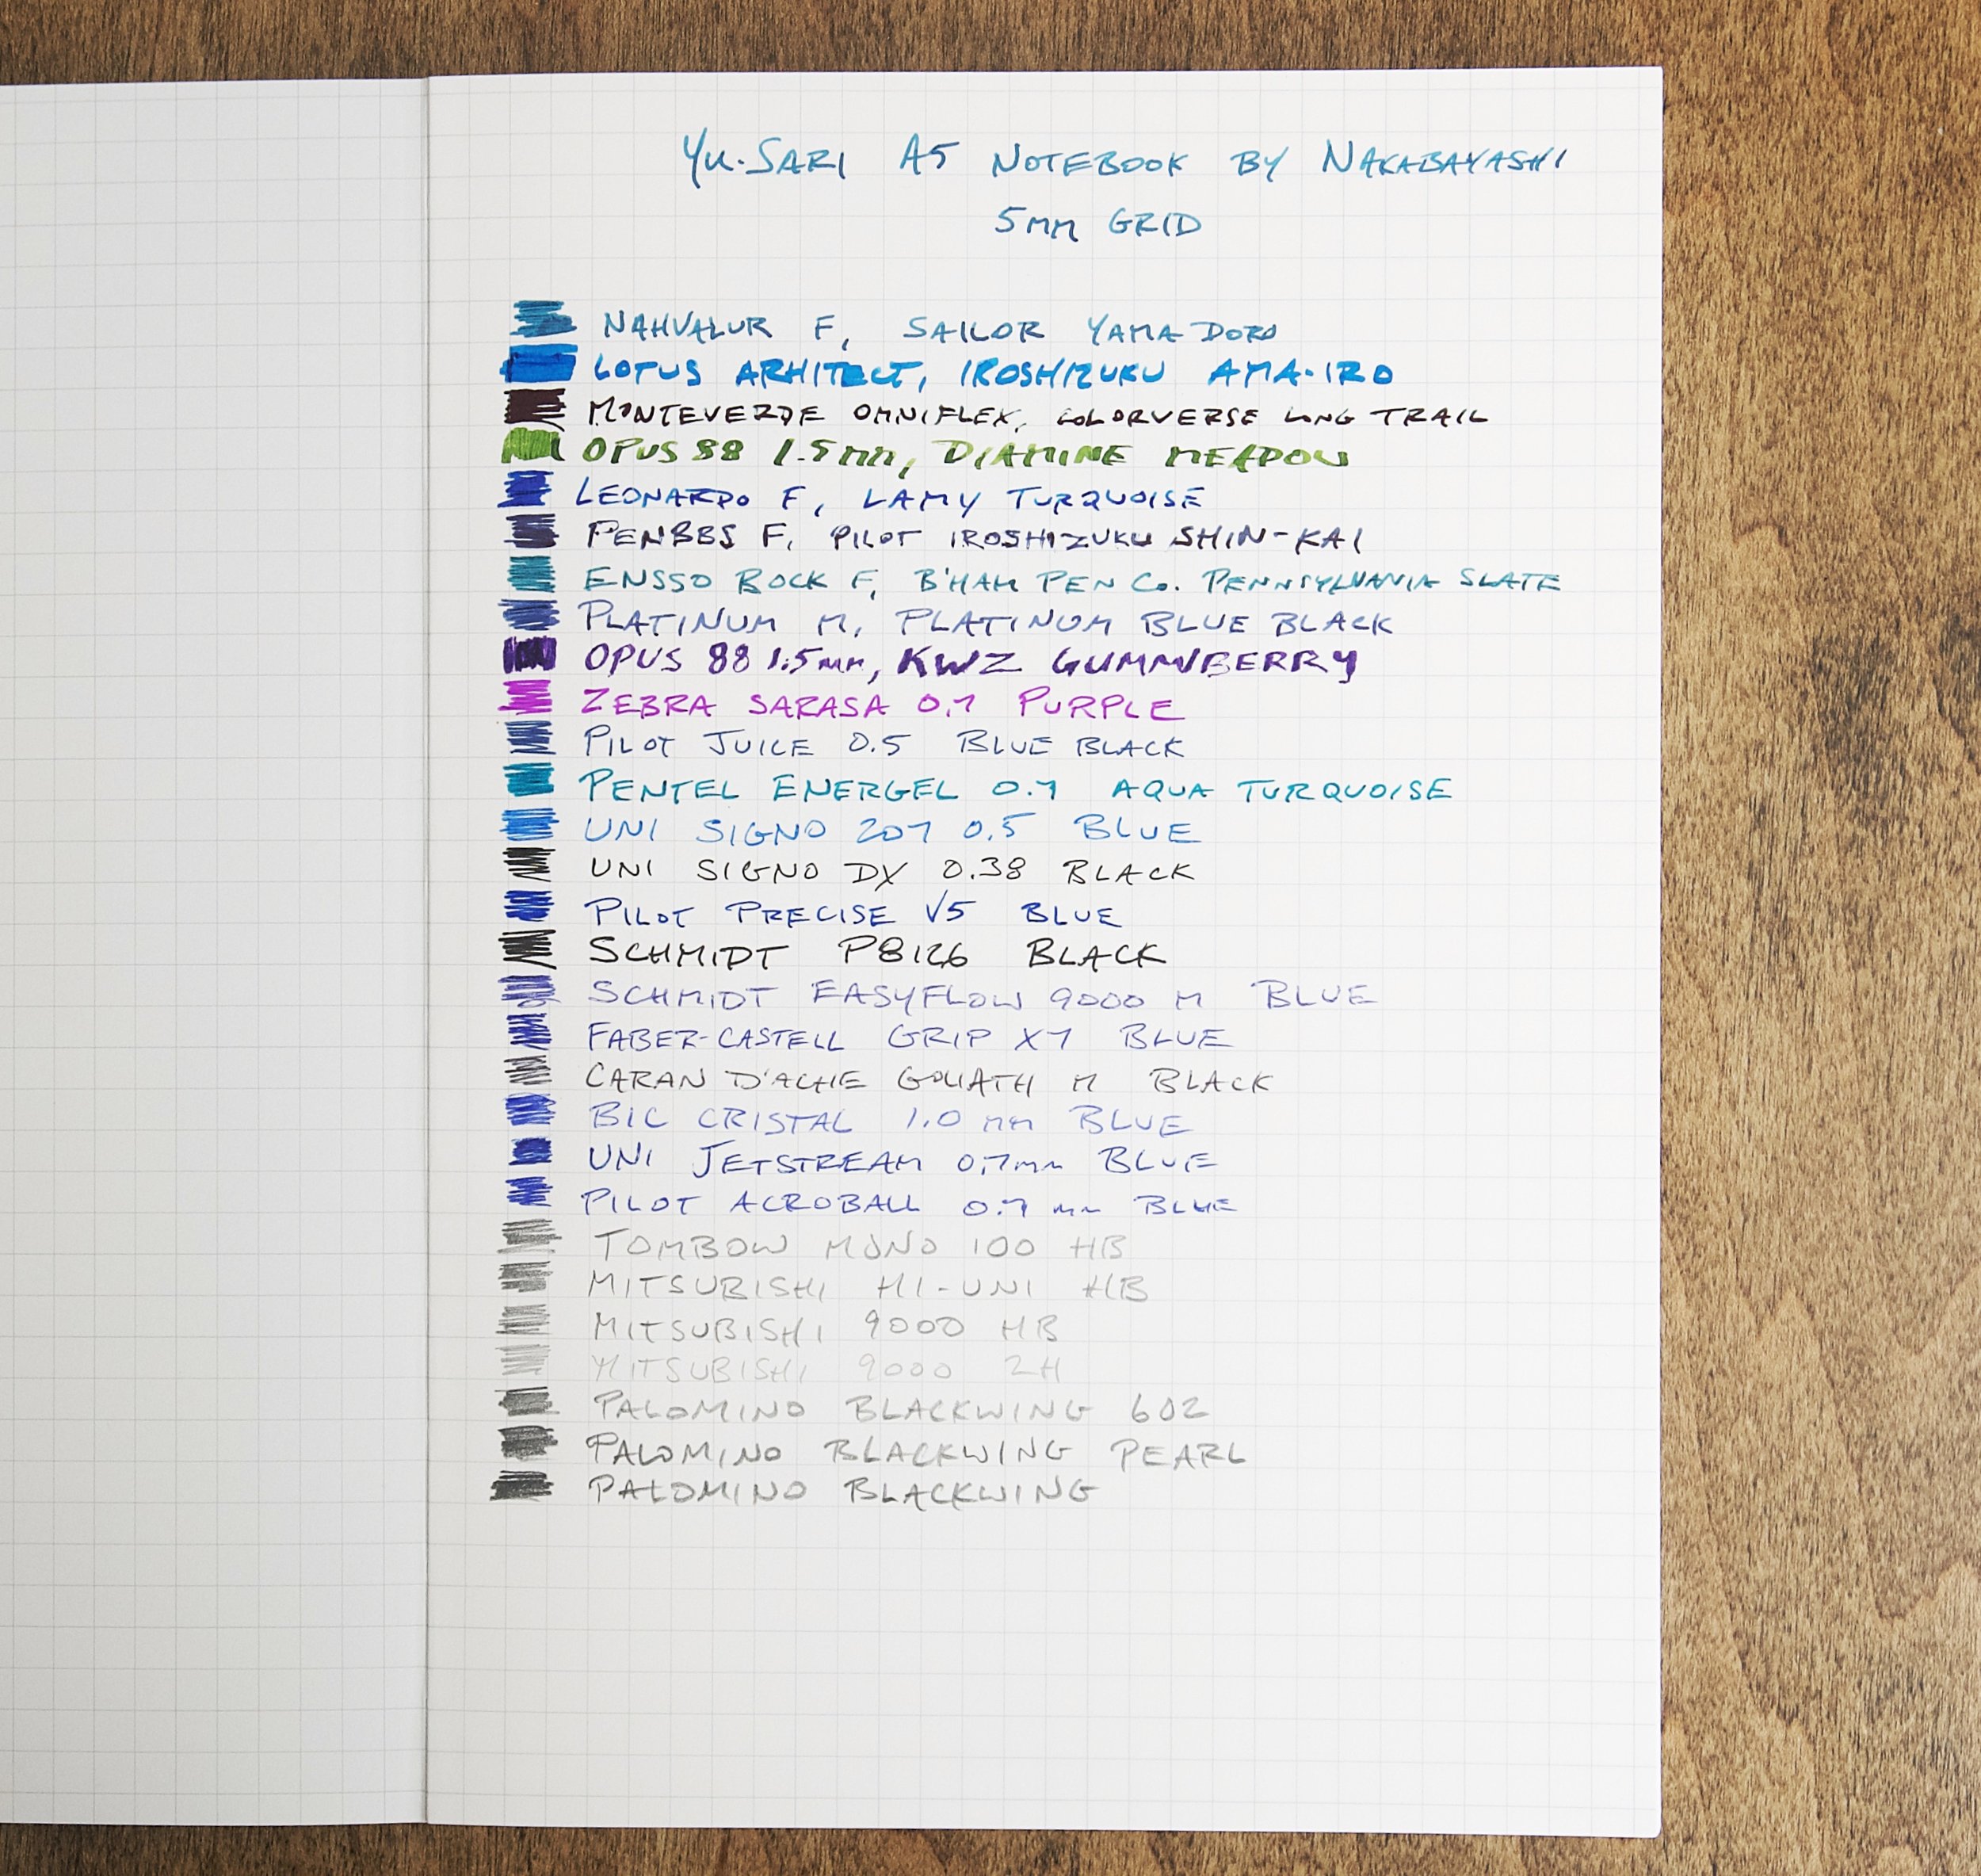 YU-SARI A5 NOTEBOOK BY NAKABAYASHI
5MM GRID
NAHVALUR F, SAILOR YAMA DORO
LOTUS ARHITECT, IROSHIZUKU AMA-IRO
MONTEVERDE OMNIFLEX, COLORVERSE LONG TRAIL
OPUS 88 1.5mm, DIAMINE MEADOW
LEONARDO F, LAMY TURQUOISE
PENBBS F, PILOT IROSHIZUKU SHIN-KAI
ENSSO BOCK F, B'HAM PEN CO. PENNSYLVANIA SLATE
PLATINUM M, PLATINUM BLUE BLACK
OPUS 88 1.5mm, KWZ GUMMIBERRY
ZEBRA SARASA 0.7 PURPLE
PILOT JUICE 0.5 BLUE BLACK
PENTEL ENERGEL 0.7 AQUA TURQUOISE
UNI SIGNO 207 0.5 BLUE
UNI SIGNO DX 0.38 BLACK
PILOT PRECISE V5 BLUE
SCHMIDT P8126 BLACK
SCHMIDT EASYFLOW 9000 M BLUE
FABER-CASTELL GRIP X7 BLUE
CARAN D'ACHE GOLIATH M BLACK
BIC CRISTAL 1.0 mm BLUE
UNI JETSTREAM 0.7mm BLUE
PILOT ACROBALL 0.7 mm BLUE
TOMBOW MONO 100 HB
MITSUBISHI HI-UNI HB
MITSUBISHI 9000 HB
MITSUBISHI 9000 2H
PALOMINO BLACKWING 602
PALOMINO BLACKWING PEARL
PALOMINO BLACKWING